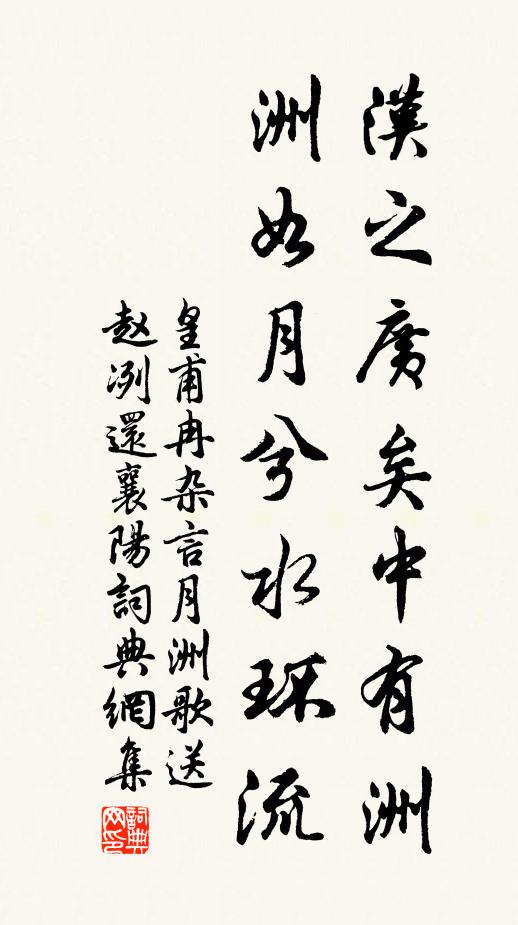 漢之廣矣中有洲
洲如月兮水环流
皇甫冉杂言月洲歌送
赵冽還襄陽詞典網集
詞典网印